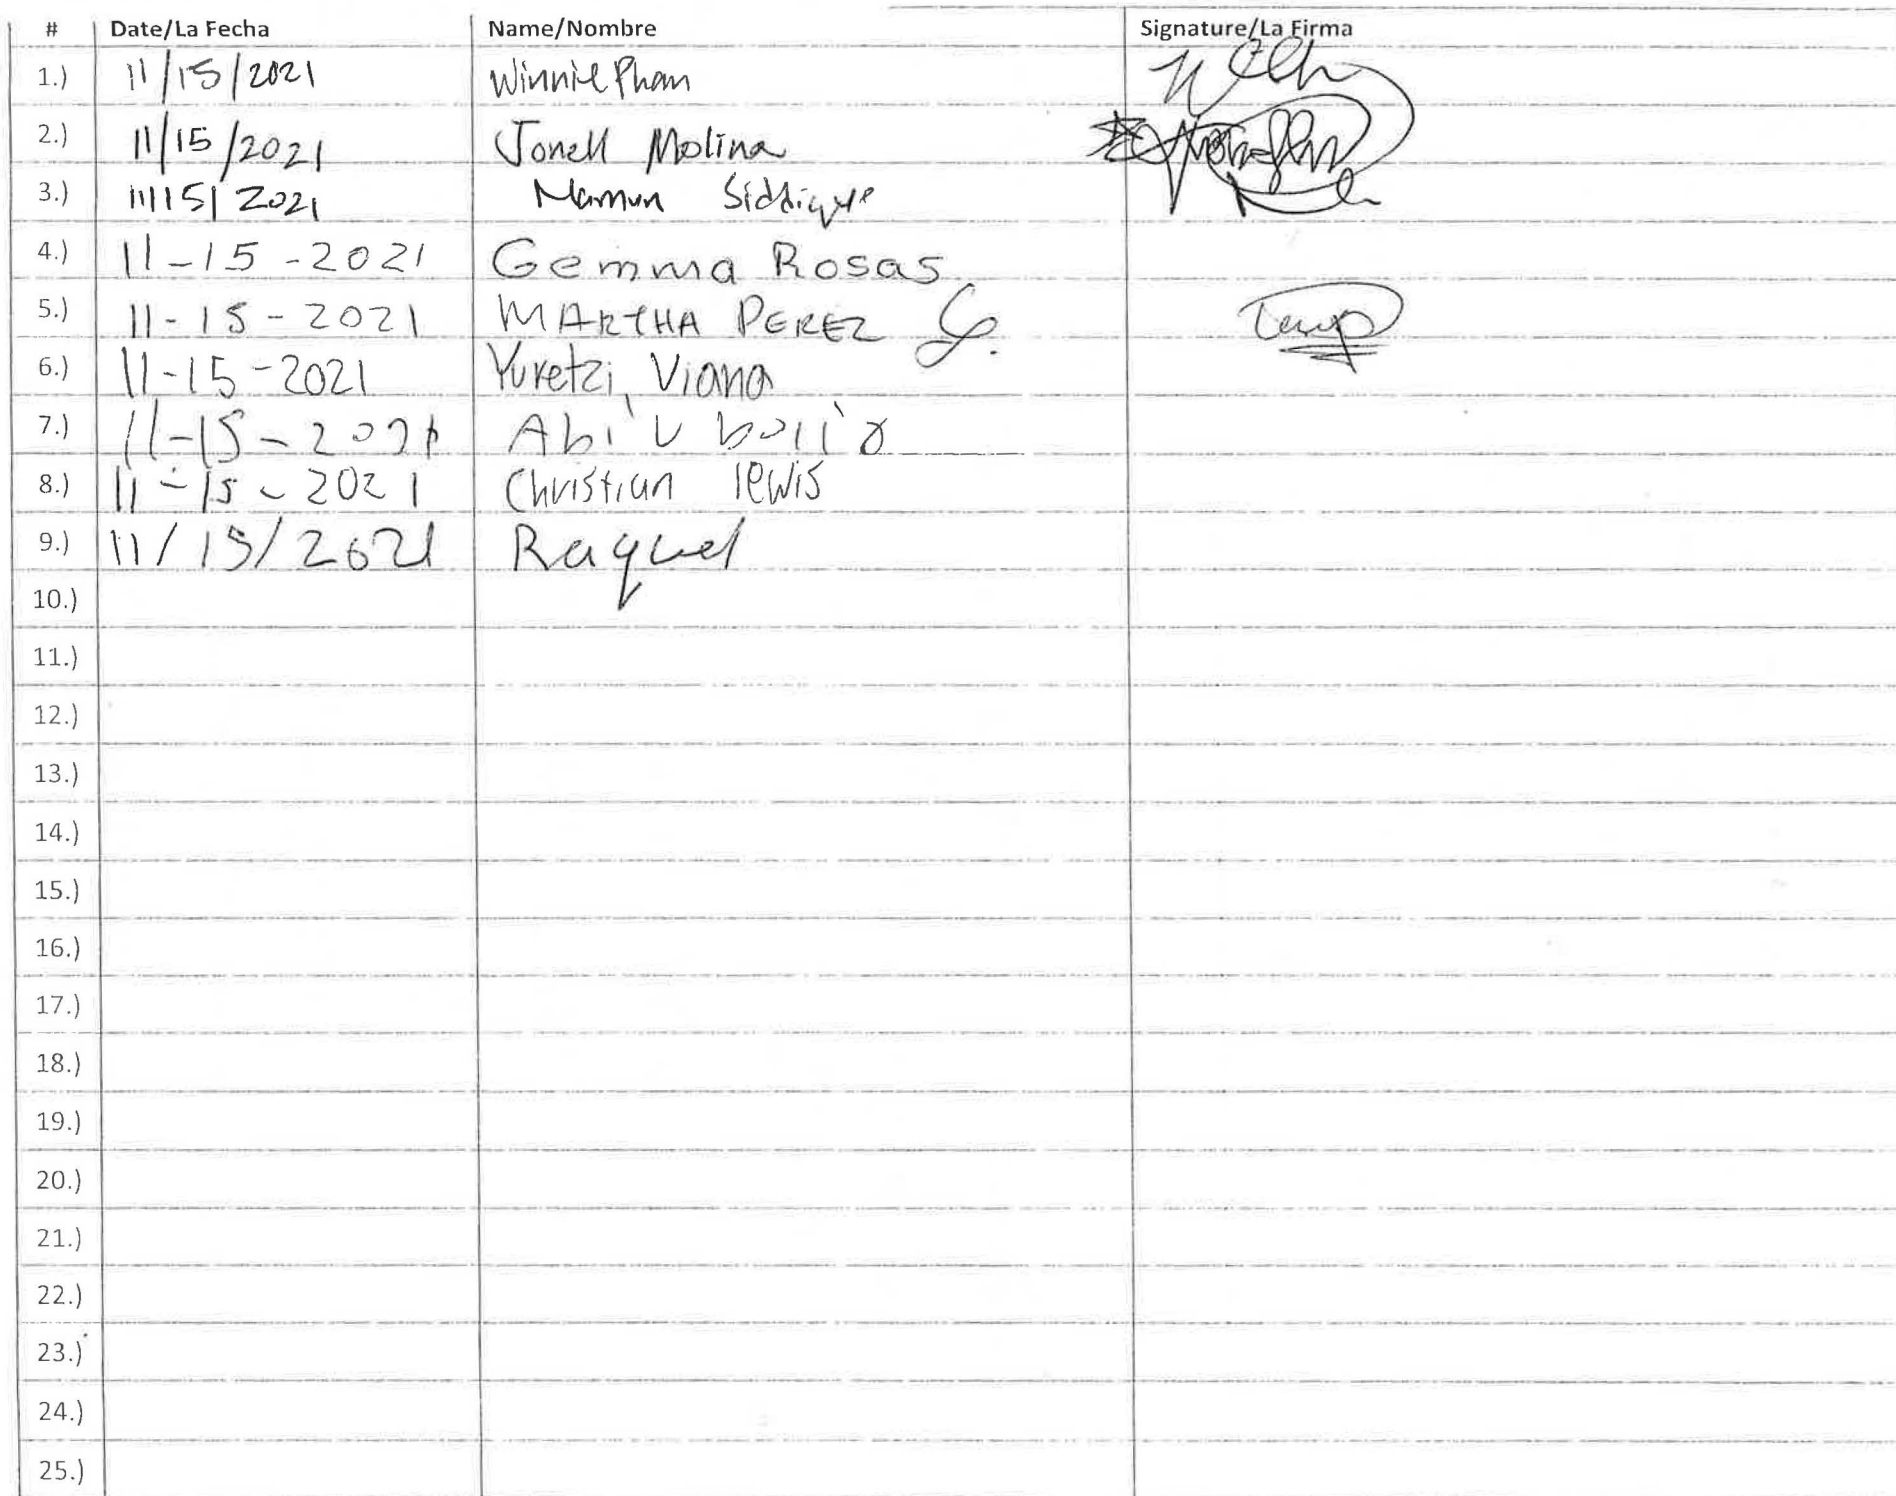 # Date/La Fecha Name/Nombre Signature/La Firma
1.) 11/15/2021 Winnie Pham
2.) 11/15/2021 Jonell Molina
3.) 11/15/2021 Mamun Siddique
4.) 11-15-2021 Gemma Rosas
5.) 11-15-2021 MARTHA PEREZ G.
6.) 11-15-2021 Yuretzi Viana
7.) 11-15-2021
8.) 11-15-2021 Christian lewis
9.) 11/15/2021 Raquel
10.)
11.)
12.)
13.)
14.)
15.)
16.)
17.)
18.)
19.)
20.)
21.)
22.)
23.)
24.)
25.)